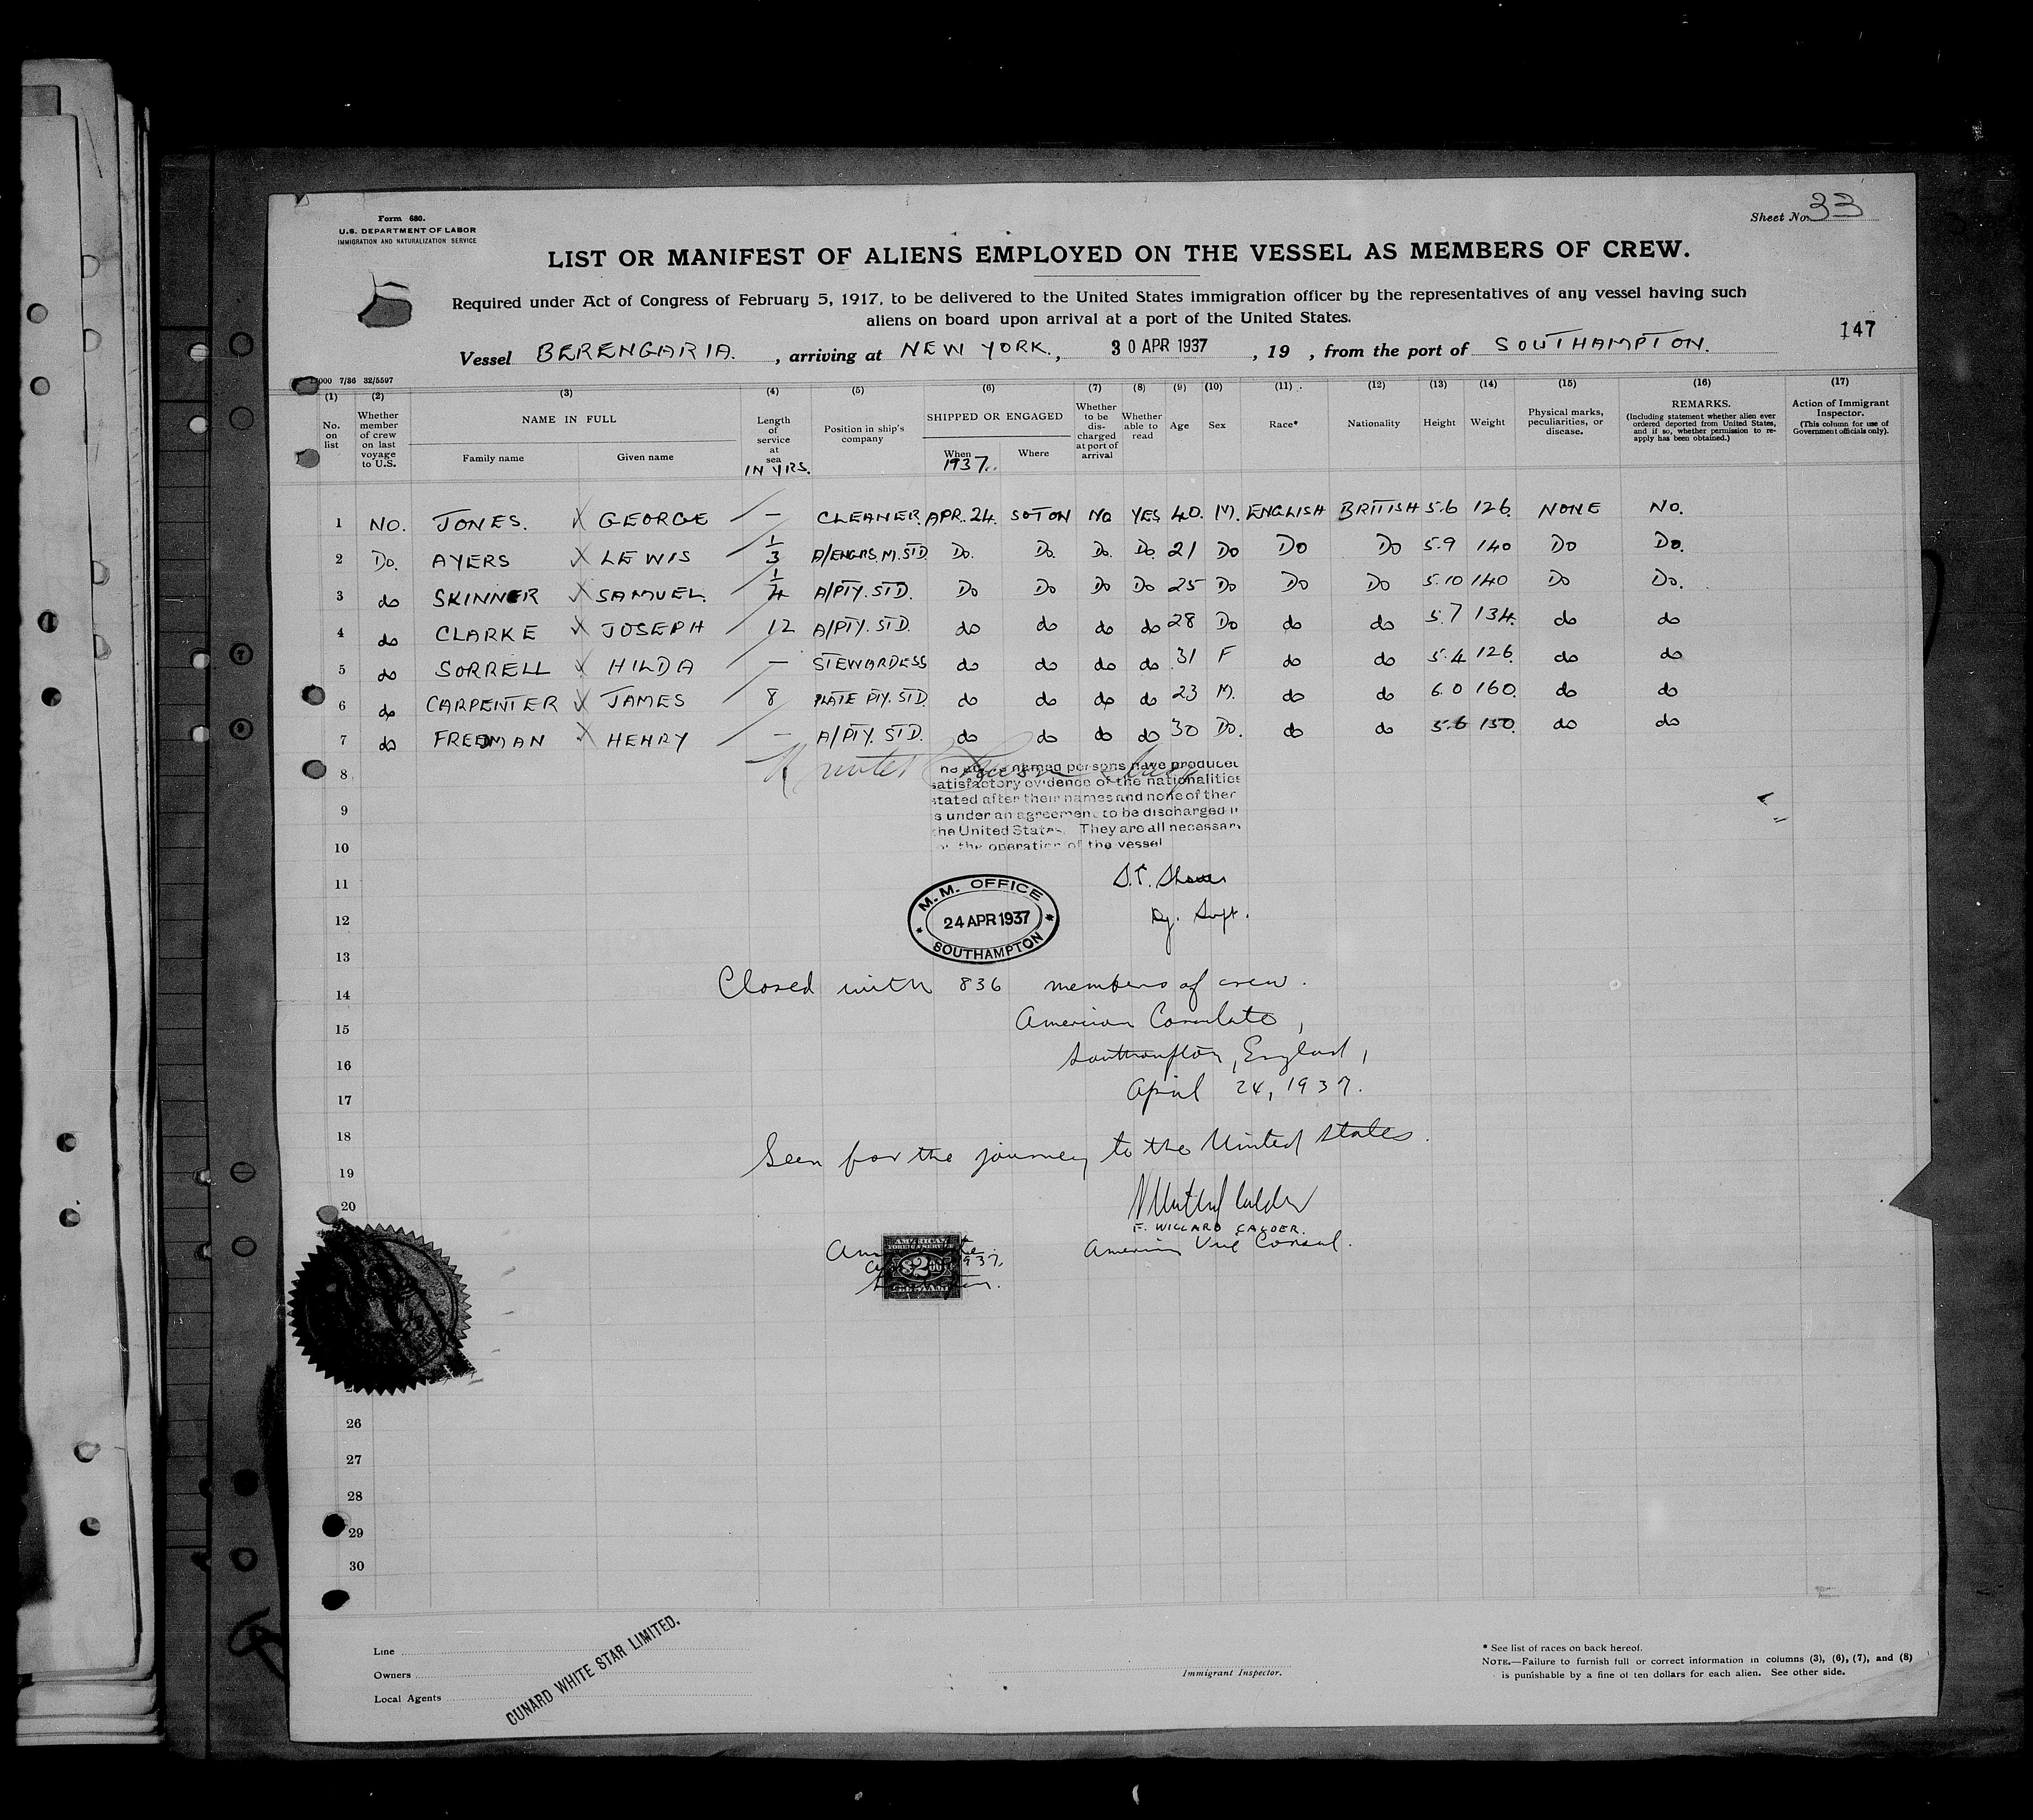 Form 680.
U.S. DEPARTMENT OF LABOR
IMMIGRATION AND NATURALIZATION SERVICE
Sheet No. 33
LIST OR MANIFEST OF ALIENS EMPLOYED ON THE VESSEL AS MEMBERS OF CREW.
Required under Act of Congress of February 5, 1917, to be delivered to the United States immigration officer by the representatives of any vessel having such
aliens on board upon arrival at a port of the United States.
147
Vessel BERENGARIA. , arriving at NEW YORK. , 30 APR 1937 , 19 , from the port of SOUTHAMPTON.
000 7/36 32/5597
(1) (2) (3) (4) (5) (6) (7) (8) (9) (10) (11) (12) (13) (14) (15) (16) (17)
No. on list
Whether member of crew on last voyage to U.S.
NAME IN FULL
Family name Given name
Length of service at sea IN YRS.
Position in ship's company
SHIPPED OR ENGAGED
When 1937. Where
Whether to be discharged at port of arrival
Whether able to read
Age
Sex
Race*
Nationality
Height
Weight
Physical marks, peculiarities, or disease.
REMARKS.
(Including statement whether alien ever ordered deported from United States, and if so, whether permission to reapply has been obtained.)
Action of Immigrant Inspector.
(This column for use of Government officials only).
1 NO. JONES. GEORGE — CLEANER. APR. 24. SOTON NO YES 40. M. ENGLISH BRITISH 5.6 126. NONE NO.
2 Do. AYERS LEWIS 1/3 A/ENGRS. M. STD. Do. Do. Do. Do. 21 Do Do Do 5.9 140 Do Do.
3 do SKINNER SAMUEL. 1/4 A/PTY. STD. Do Do Do Do 25 Do Do Do 5.10 140 Do Do.
4 do CLARKE JOSEPH 12 A/PTY. STD. do do do do 28 Do do do 5.7 134. do do
5 do SORRELL HILDA — STEWARDESS do do do do 31 F do do 5.4 126. do do
6 do CARPENTER JAMES 8 PLATE PTY. STD. do do do do 23 M. do do 6.0 160. do do
7 do FREEMAN HENRY — A/PTY. STD. do do do do 30 Do. do do 5.6 150. do do
8
named persons have produced
satisfactory evidence of the nationalities
stated after their names and none of them
9
s under an agreement to be discharged i
the United States. They are all necessary
10
the operation of the vessel
11
M. M. OFFICE
24 APR 1937
SOUTHAMPTON
12
Dy. Supt.
13
14
Closed with 836 members of crew.
15
American Consulate,
16
Southampton, England,
17
April 24, 1937.
18
19
Seen for the journey to the United States.
20
F. WILLARD CALDER.
American Vice Consul.
AMERICAN
FOREIGN SERVICE
$2
1937.
26
27
28
29
30
Line
Owners
Local Agents
CUNARD WHITE STAR LIMITED.
Immigrant Inspector.
* See list of races on back hereof.
NOTE.—Failure to furnish full or correct information in columns (3), (6), (7), and (8)
is punishable by a fine of ten dollars for each alien. See other side.